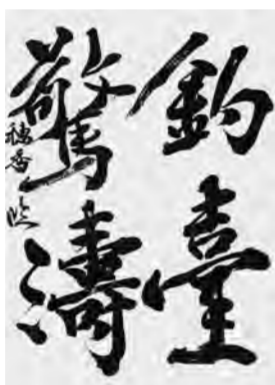 釣臺
驚濤
穗香臨